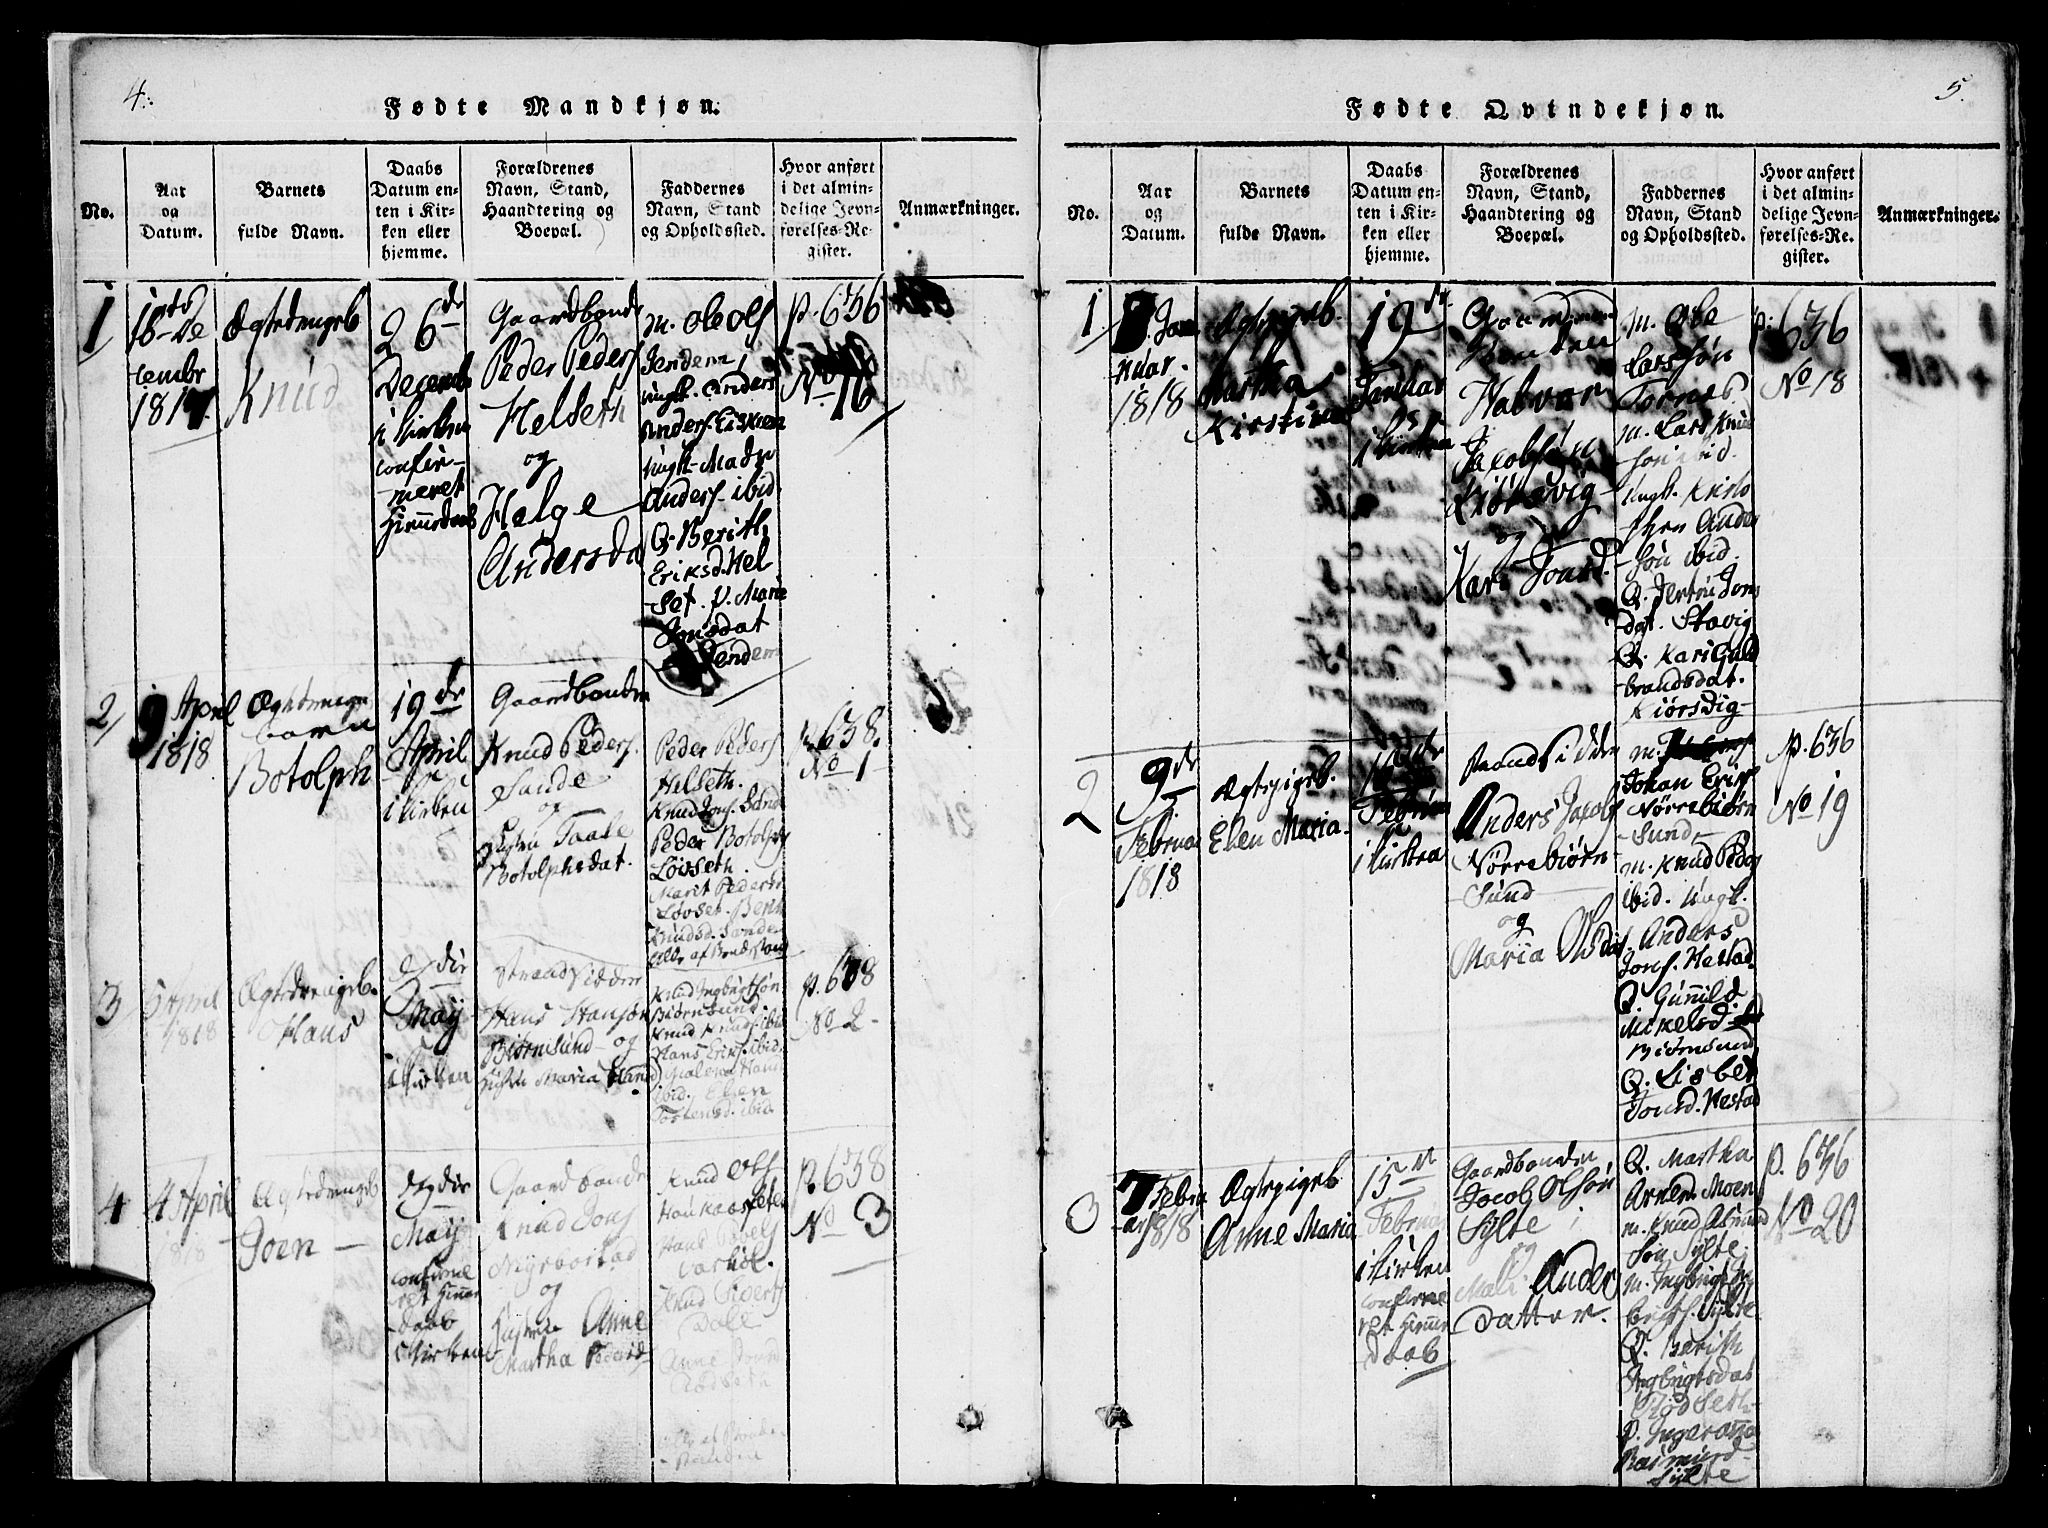 4.
Fødte Mandkjøn.
No.
Aar
og
Datum.
Barnets
fulde Navn.
Daabs
Datum en-
ten i Kir-
ken eller
hjemme.
Forældrenes
Navn, Stand,
Haandtering og
Boepæl.
Faddernes
Navn, Stand
og Opholdssted.
Hvor anført
i det almin-
delige Jevn-
førelses-Re-
gister.
Anmærkninger.
1
18 De
cembr
1817
Ægtedrengeb
Knud
26de
Decemb
i Kirken
confir-
meret
Hjemedaab
Gaardbonde
Peder Peders
Helseth
og
Helge
Andersda
m. Ole Ols
Jendem
Ungk. Anders
Anders. Eisken
Ungk. Mads
Anders. ibid
Q. Berith
Eriksd. Hel
-set. P. Marie
Jonsdat
Jendem
p. 636
No 16
2
9 April
1818
Ægtedrenge
barn
Botolph
19de
April
i Kirken
Gaardbonden
Knud Peders.
Sunde
og
Hustru Taale
Botolphsdat.
Peder Peders
Helseth.
Knud Jons. Sand
Peder Botolphs
Løvseth.
Marit Peders
Løvset. Berit
Knudsd. Sande
alle af Bondestand
p. 638.
No 1
3
5 April
1818
Ægtedrengeb.
Hans
May
i Kirken
Strandsidder
Hans Hansøn
Biørnsund og
Hustru Maria Hansd
Knud Ingbrigtsøn
Biørnsund
Knud Knuds ibid
Hans Eriks. ibid.
Malena Hans
ibid. Elen
Tostensd. ibid.
p. 638
No 2
4
4 April
1818
Ægtedrengeb
Joen
May
confirme
ret Hjemme
daab
i Kirken
Gaardbonde
Knud Jons
Myrbostad
og
Hustru Anne
Martha Pedersd
Knud Ols
Houkaassetter
Hans
Knud Siverts
Dale
Anne Jonsd
Rødseth
p. 638
No 3
5.
Fødte Qvindekjøn.
No.
Aar
og
Datum.
Barnets
fulde Navn.
Daabs
Datum en-
ten i Kir-
ken eller
hjemme.
Forældrenes
Navn, Stand,
Haandtering og
Boepæl.
Faddernes
Navn, Stand
og Opholdssted.
Hvor anført
i det almin-
delige Jevn-
førelses-Re-
gister.
Anmærkninger.
1
8. Jan
uar.
1818
Ægtepigeb.
Martha
Kirstina
19
Januar
i Kirken
Halvor
Jacobsøn
Kiørsvig
og
Kari Jonsd.
m. Ole
Larssøn
Tornes
m. Lars Knud
søn ibid.
Ungk. Kristo
pher Ander
søn ibid.
Q. Jertrü Jons
dat. Stavig
Q. Kari Guld
brandsdat.
Kiørsvig
p. 636
No 18
2
9de
Februar
1818
Ægtepigeb.
Elen Maria
Februar
i Kirken
Strandsidden
Anders Jacobs
Nørrebiørn
-sund
og
Maria Olsdat.
m.
Johan Eriks
Nørrebiørn
-sund
m. Knud Peders
ibid. Ungk.
Anders
Jons. Hestad.
Q. Gunnild
Mikelsd
Biørnsund
Q. Lisbet
Jonsd. Hestad
p. 636
No 19
3
7 Febru
ar 1818
Ægtepigeb
Anne Maria
15
Februar
i Kirken
confirme
ret Hjemme
daab
Gaardbonden
Jacob Olsøn
Sylte
og
Mali Anders
Datter.
Q. Martha
Arnesd. Moen
m. Knud Asmund
søn Sylte.
m. Ingbrigt In
brigts. Sylte
Q. Berith
Ingbrigtsdat
Rødseth.
p. Inger Anna
Rasmusd
Sylte
p. 636
No 20